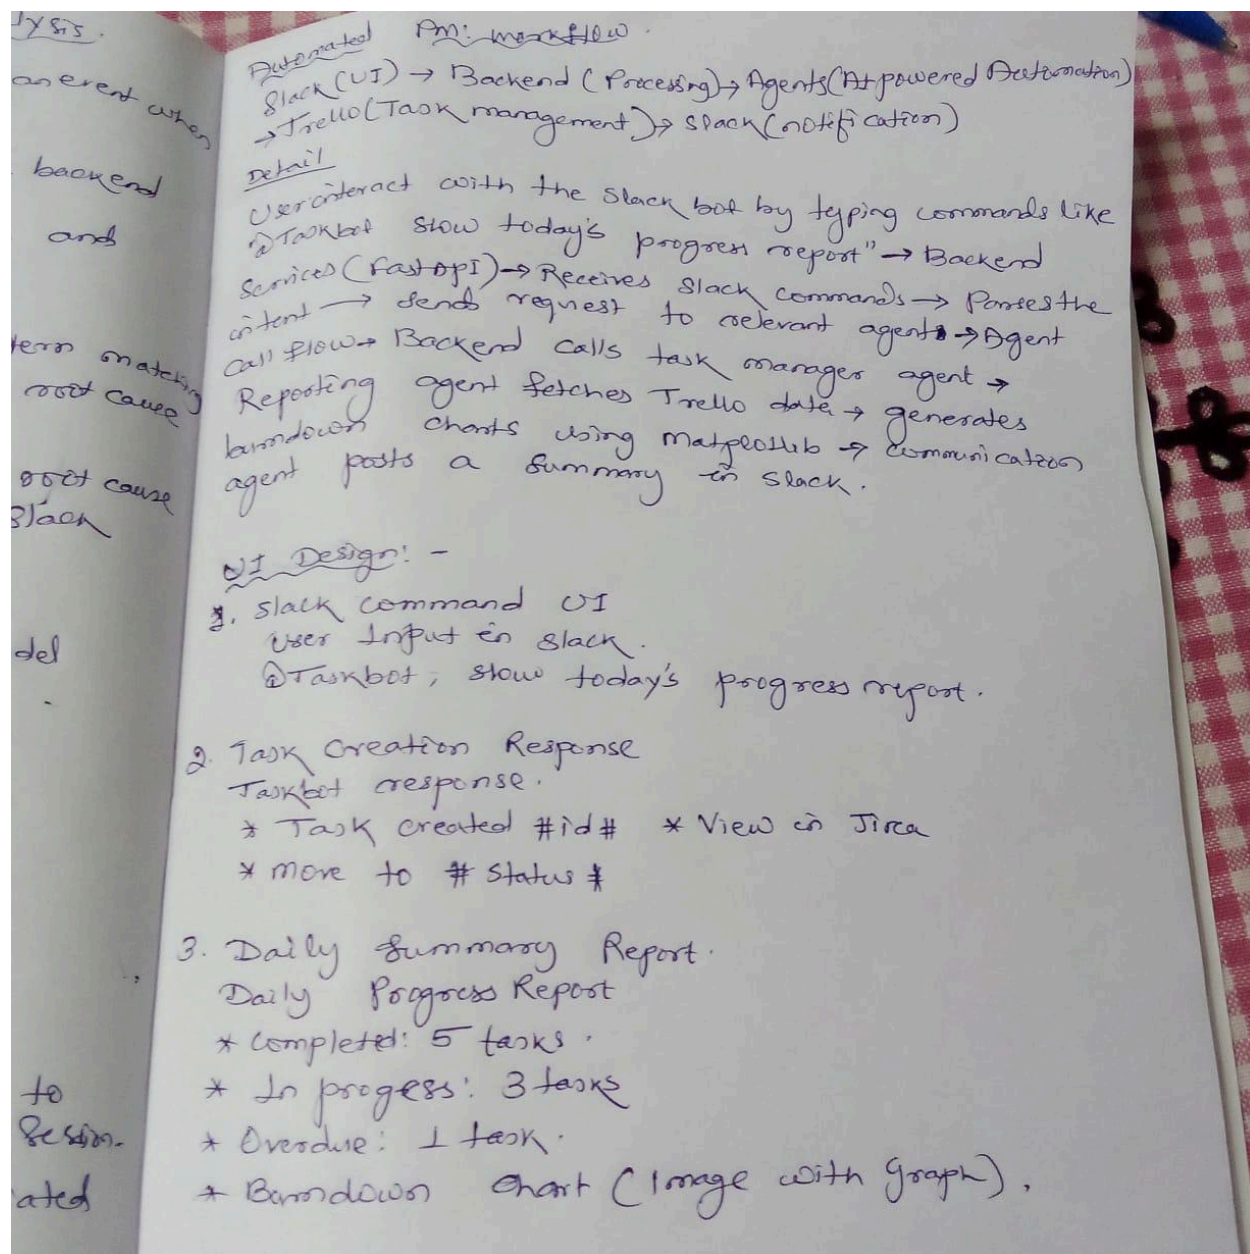 lysis.
an event when
backend
and
tern matching
root cause
root cause
Slack
del
to
Session.
ated
Automated PM: workflow.
Slack (UI) → Backend (Processing) → Agents (AI powered Automation)
→ Trello (Task management) → Slack (notification)
Detail
User interact with the Slack bot by typing commands like
@Taskbot show today's progress report" → Backend
Services (FastAPI) → Receives Slack commands → Parses the
intent → sends request to relevant agents → Agent
call flow → Backend calls task manager agent →
Reporting agent fetches Trello data → generates
burndown charts using Matplotlib → communication
agent posts a summary in Slack.
UI Design: -
1. Slack command UI
User Input in Slack.
@Taskbot, show today's progress report.
2. Task Creation Response
Taskbot response.
* Task created #id# * View in Jira
* move to # Status #
3. Daily Summary Report.
Daily Progress Report
* Completed: 5 tasks.
* In progess: 3 tasks
* Overdue: 1 task.
* Burndown Chart (Image with Graph).